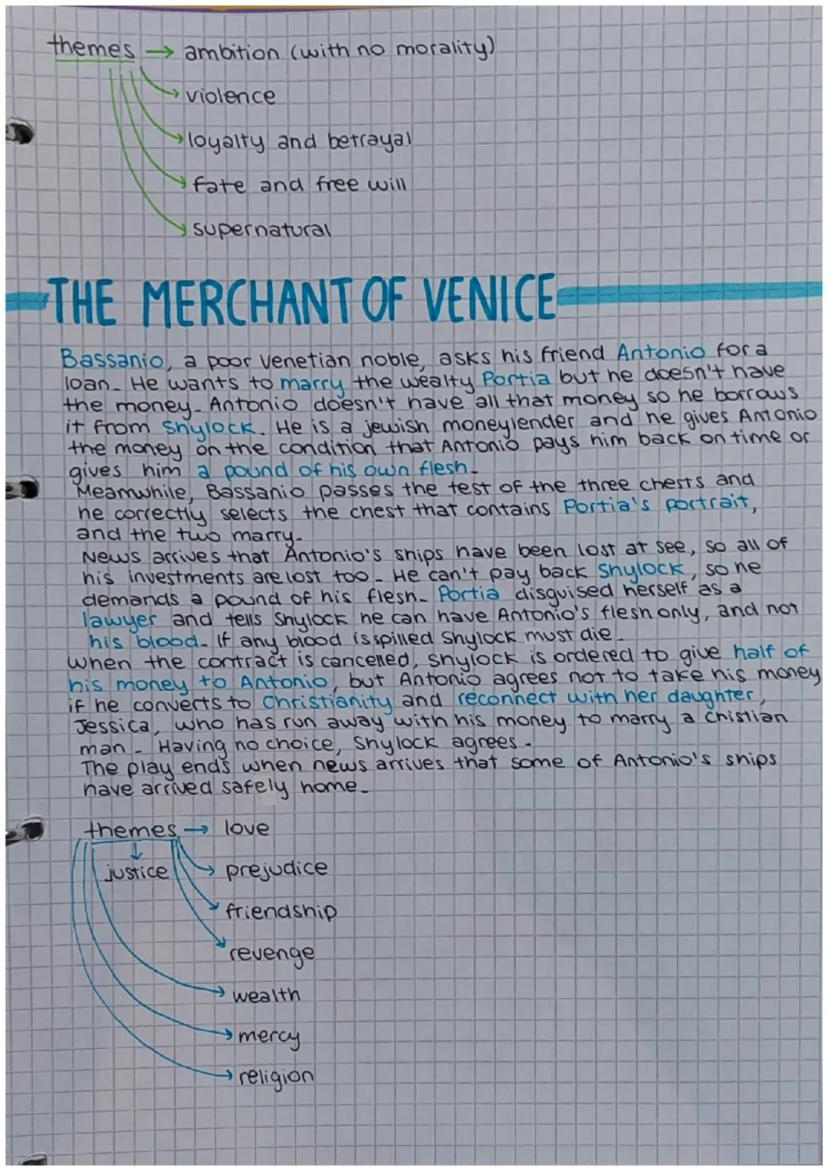 themes → ambition (with no morality)
violence
loyalty and betrayal
fate and free will
supernatural
THE MERCHANT OF VENICE
Bassanio, a poor venetian noble, asks his friend Antonio for a
loan. He wants to marry the wealty Portia but he doesn't have
the money. Antonio doesn't have all that money so he borrows
it from Shylock. He is a jewish moneylender and he gives Antonio
the money on the condition that Antonio pays him back on time or
gives him a pound of his own flesh.
Meanwhile, Bassanio passes the test of the three chests and
he correctly selects the chest that contains Portia's portrait,
and the two marry.
News arrives that Antonio's ships have been lost at see, so all of
his investments are lost too. He can't pay back Shylock, so he
demands a pound of his flesh. Portia disguised herself as a
lawyer and tells Shylock he can have Antonio's flesh only, and not
his blood. If any blood is spilled Shylock must die.
When the contract is cancelled, Shylock is ordered to give half of
his money to Antonio, but Antonio agrees not to take his money
if he converts to Christianity and reconnect with her daughter,
Jessica, who has run away with his money to marry a christian
man. Having no choice, Shylock agrees.
The play ends when news arrives that some of Antonio's ships
have arrived safely home.
themes → love
justice
prejudice
friendship
revenge
wealth
mercy
religion